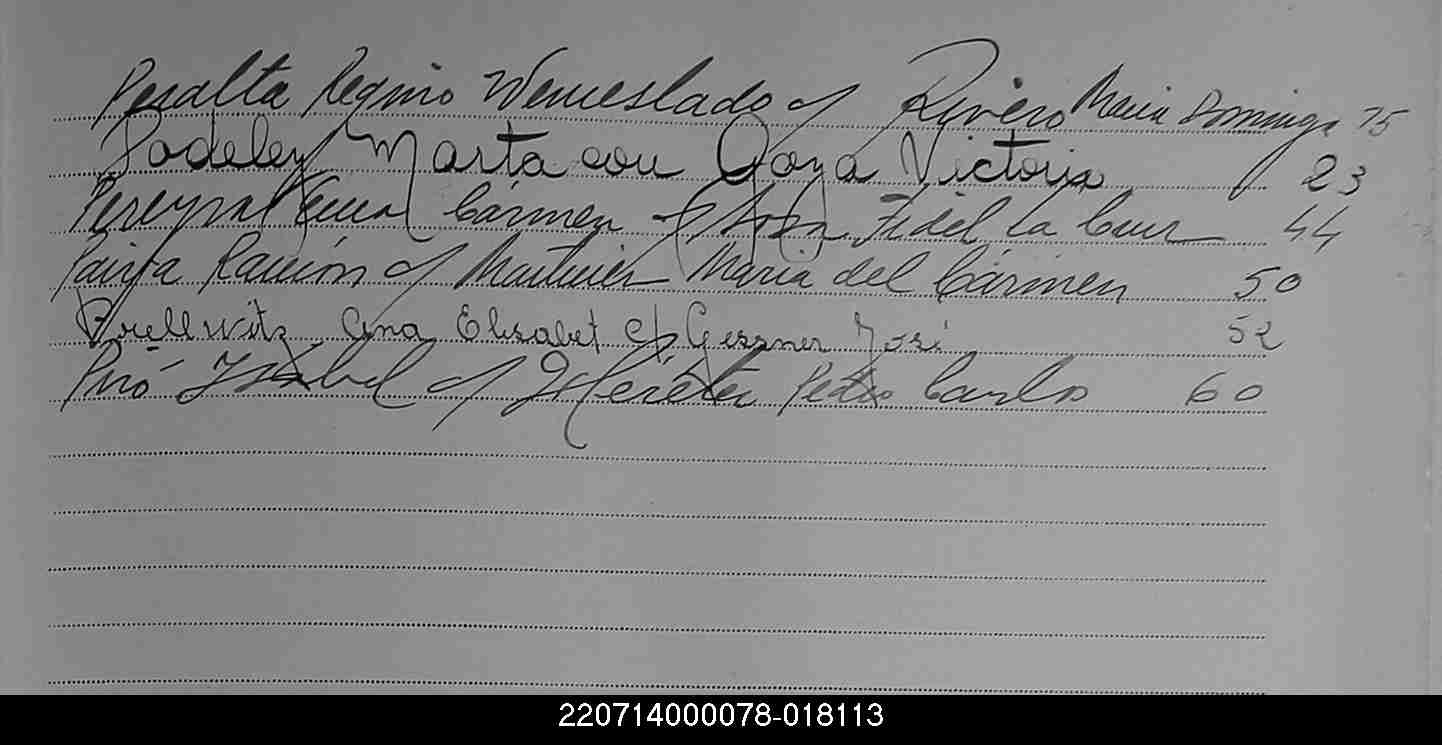 Peralta Regino Wenceslado c/ Rivero Maria Dominga 75
Podeley Marta con Goya Victoria 23
Pereyra Carmen c/ Fidel La Cruz 44
Paiva Ramón c/ Martinez Maria del Carmen 50
Prellwitz Ana Elisabet c/ Gessner José 52
Piró Isabel c/ Hereter Pedro Carlos 60
220714000078-018113